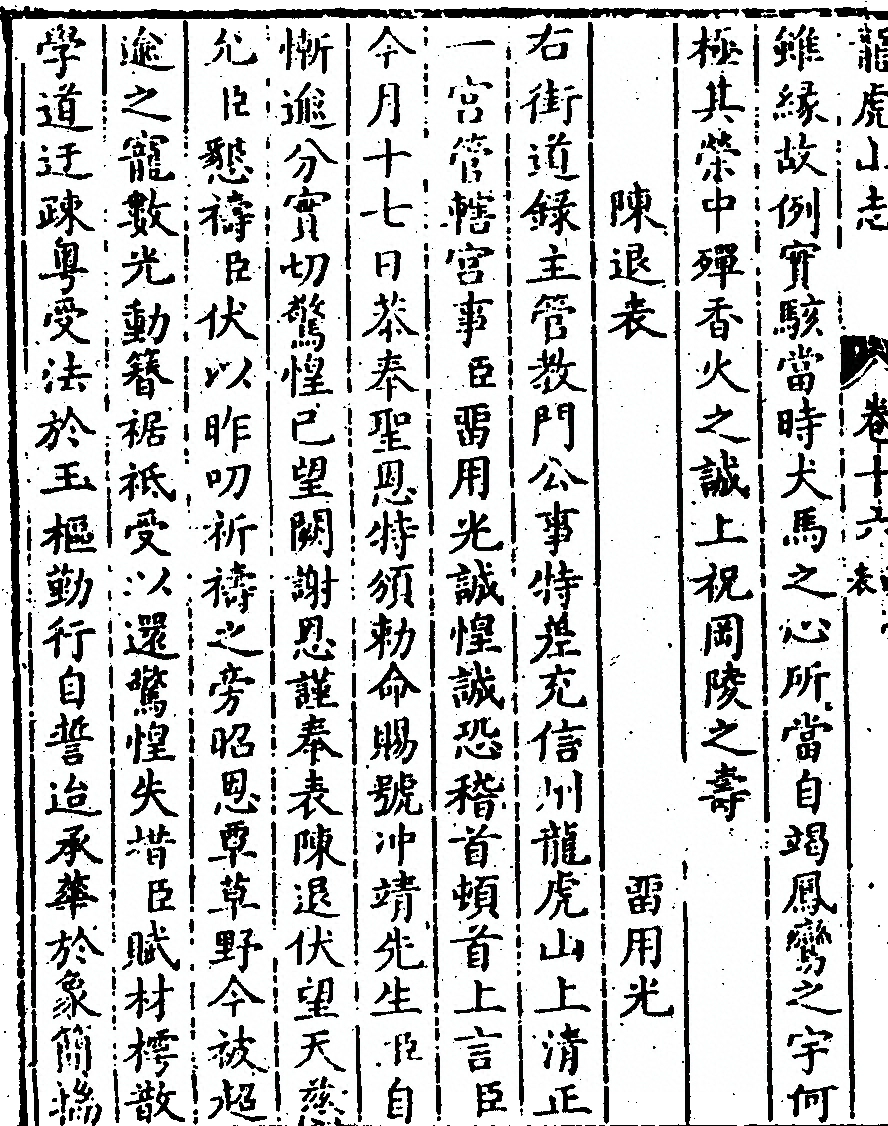 龍虎山志 卷十六 表
雖緣故例實駭當時犬馬之心所當自竭鳳鸞之宇何
極其榮中殫香火之誠上祝岡陵之壽
陳退表 畱用光
右街道錄主管教門公事特差充信州龍虎山上清正
一宮管轄宮事臣畱用光誠惶誠恐稽首頓首上言臣
今月十七日恭奉聖恩特頒勅命賜號沖靖先生臣自
慚逾分實切驚惶已望闕謝恩謹奉表陳退伏望天慈
允臣懇禱臣伏以昨叨祈禱之旁昭恩覃草野今被超
逾之寵數光動簪裾祗受以還驚惶失措臣賦材樗散
學道迂疎粤受法於玉樞勤行自誓迨承華於象簡惴